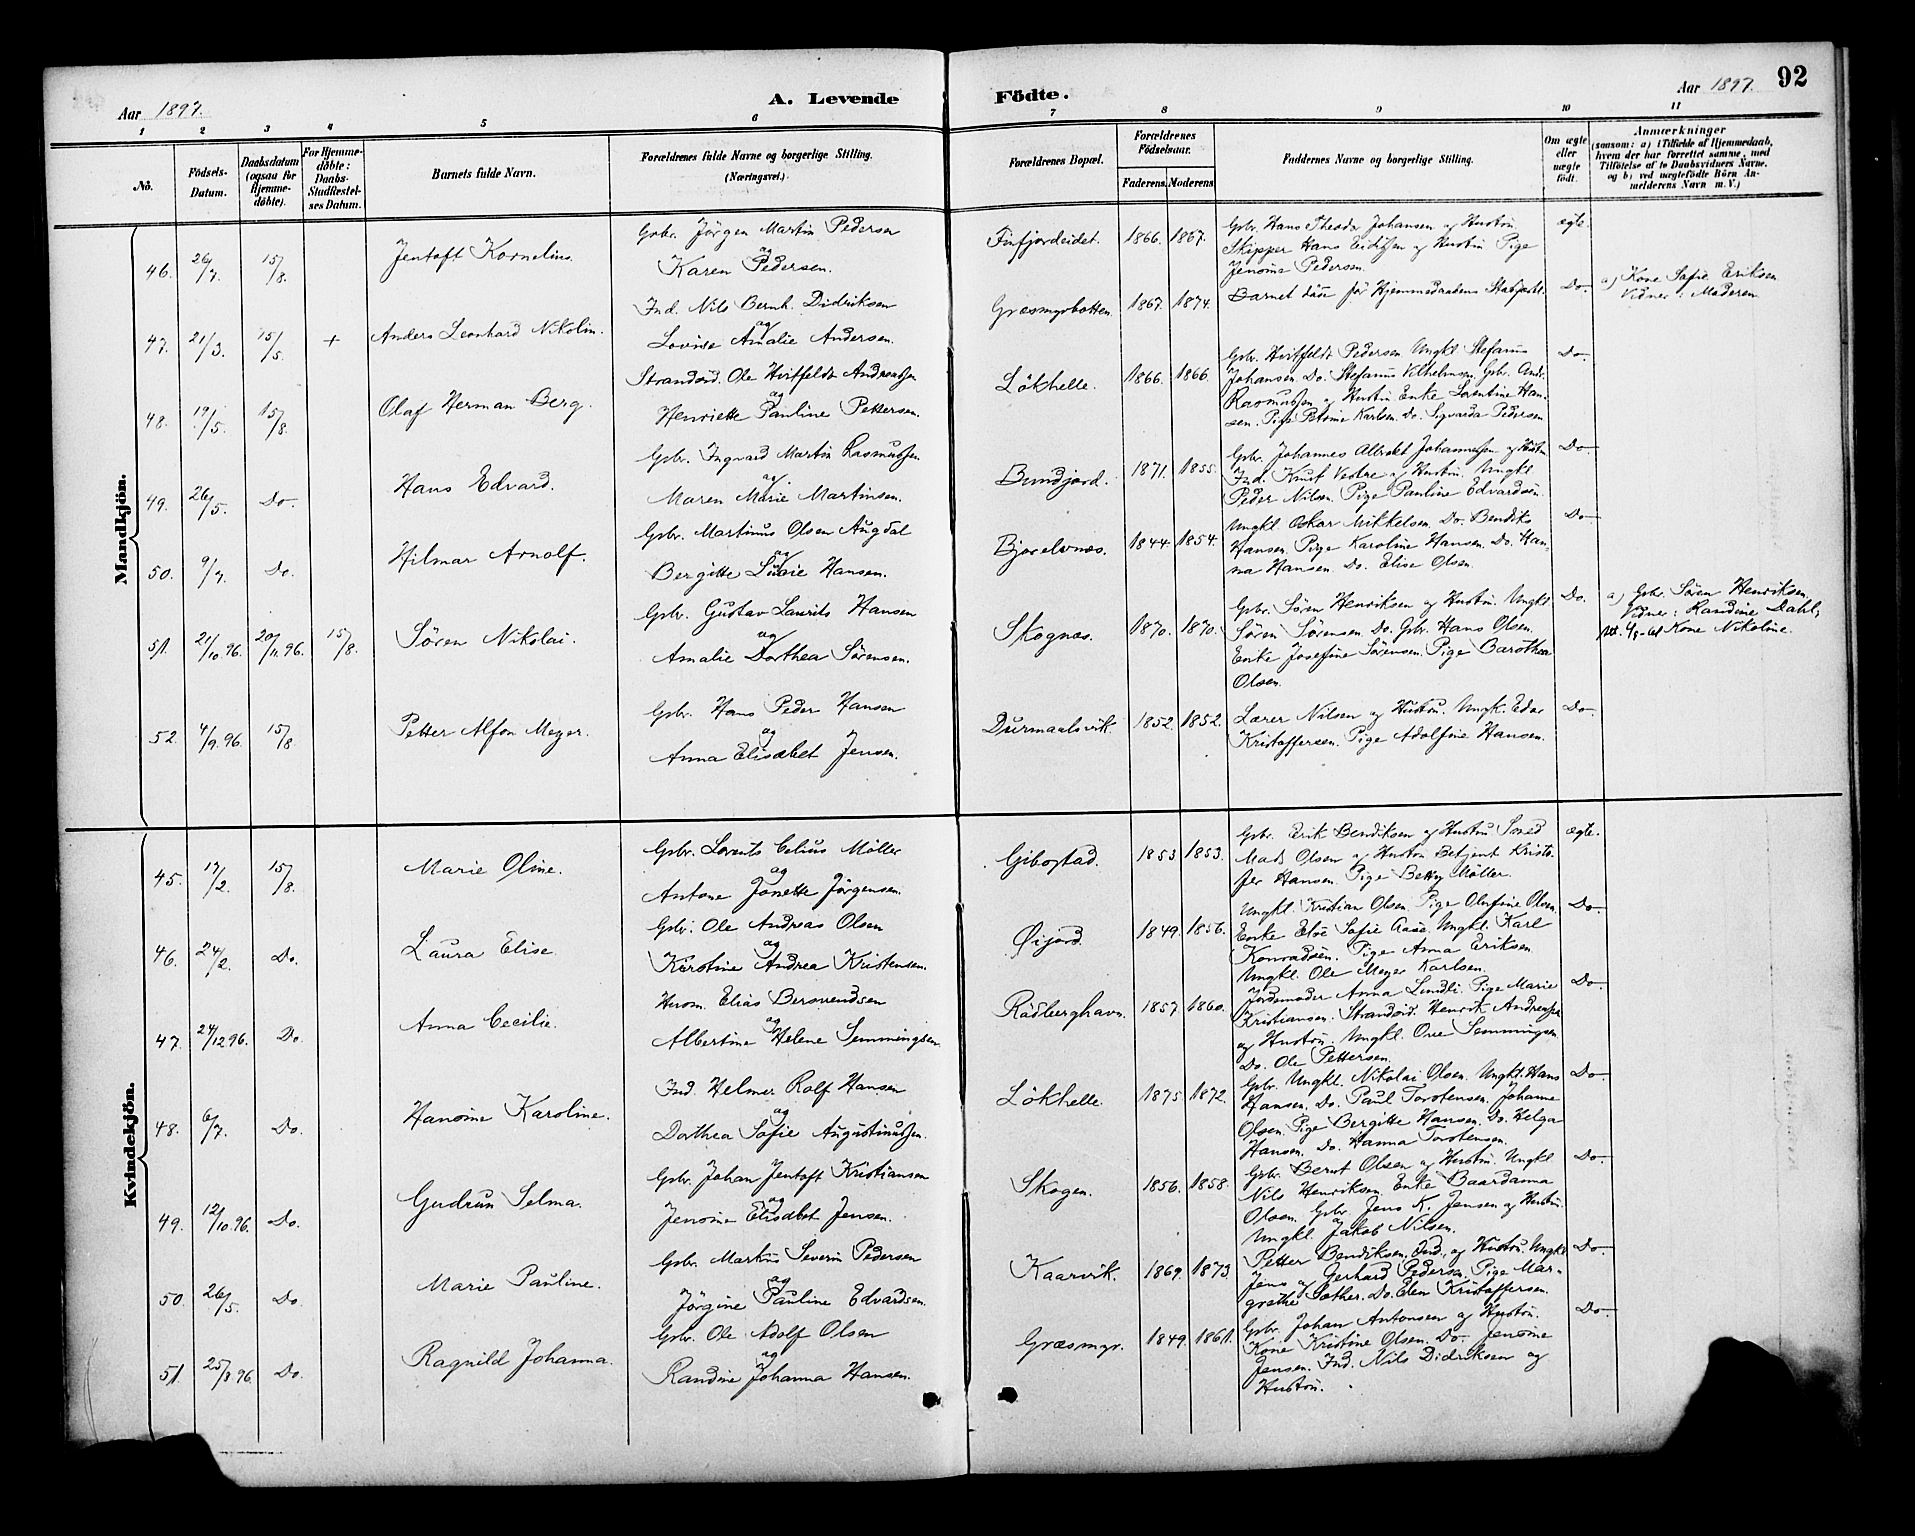 Aar 1897.
A. Levende Födte.
Aar 1897.
92
1 2 3 4 5 6 7 8 9 10 11
Nö.
Födsels-Datum.
Daabsdatum (ogsaa for Hjemme-döbte).
For Hjemme-döbte: Daabs-Stadfæstel-ses Datum.
Barnets fulde Navn.
Forældrenes fulde Navne og borgerlige Stilling. (Næringsvei.)
Forældrenes Bopæl.
Forældrenes Födselsaar.
Faderens. Moderens.
Faddernes Navne og borgerlige Stilling.
Om ægte eller uægte födt.
Anmærkninger
(saasom: a) i Tilfælde af Hjemmedaab,
hvem der har forrettet samme, med
Tilföielse af to Daabsvidners Navne,
og b) ved uægtefödte Börn An-
melderens Navn m. V.)
Mandkjön.
46. 26/7. 15/8. Jentoft Kornelius. Gbr. Jörgen Martin Pedersen
og
Karen Pedersen.
Finfjordeidet. 1866. 1867.
Gbr. Hans Theodor Johansen og Hustru
Skipper Hans Eidissen og Hustru Pige
Jensine Pedersen.
ægte.
47. 21/3. 15/5. + Anders Leonhard Nikolin. Ind. Nils Bernh. Didriksen
og
Lovise Amalie Andersen.
Græsmyrbotten. 1867. 1874.
Barnet døde før Hjemmedaabens Stadfæst.
Do.
a) Kone Sofie Eriksen
Vidner: Moderen
48. 19/5. 15/8. Olaf Herman Berg. Strandsid. Ole Hvitfeldt Andreassen
og
Henriette Pauline Pettersen.
Lökhelle. 1866. 1866.
Gbr. Hvitfeldt Pedersen. Ungkl. Stefanus
Johansen. Do. Stefanus Vilhelmsen. Gbr. Andr.
Rasmussen og Hustru Enke Lorentine Han-
sen. Pige Petrine Karlsen. Do. Sigvarda Pedersen
Do.
49. 26/5. Do. Hans Edvard. Gbr. Ingvard Martin Rasmussen
og
Maren Marie Martinsen.
Bundjord. 1871. 1855.
Gbr. Johannes Albrekt Johannessen og Hustru
Ind. Knut Vedre og Hustru. Ungkl.
Peder Nilsen. Pige Pauline Edvardsen.
Do.
50. 9/7. Do. Hilmar Arnolf. Gbr. Martinus Olsen Augdal
og
Bergitte Lusie Hansen.
Bjorelvnæs. 1844. 1854.
Ungkl. Oskar Mikkelsen. Do. Bendiks
Hansen. Pige Karoline Hansen. Do. Han-
na Hansen. Do. Elise Olsen.
Do.
51. 21/10.96. 20/11.96. 15/8. Søren Nikolai. Gbr. Gustav Laurits Hansen
og
Amalie Dorthea Sørensen.
Skognæs. 1870. 1870.
Gbr. Søren Henriksen og Hustru. Ungkl.
Søren Sørensen. Do. Gbr. Hans Olsen.
Enke Josefine Sørensen. Pige Barothea
Olsen.
Do.
a) Gbr. Søren Henriksen.
Vidner: Randine Dahl,
Kone Nikoline.
52. 4/9.96. 15/8. Petter Alfon Meyer. Gbr. Hans Peder Hansen
og
Anna Elisabet Jensen.
Durmaalsvik. 1852. 1852.
Lærer Nilsen og Hustru. Ungk. Edv.
Kristoffersen. Pige Adolfine Hansen.
Do.
Kvindekjön.
45. 17/2. 15/8. Marie Oline. Gbr. Lorents Celius Möller
og
Antone Jonette Jörgensen.
Gibostad. 1853. 1853.
Gbr. Erik Bendiksen og Hustru Smed
Mads Olsen og Hustru Betjent Kristo-
fer Hansen. Pige Betty Möller.
ægte.
46. 24/2. Do. Laura Elise. Gbr. Ole Andreas Olsen
og
Kirstine Andrea Kristensen.
Øijord. 1849. 1856.
Ungkl. Kristian Olsen. Pige Olufine Olsen.
Enke Else Sofie Aase. Ungkl. Karl
Konradsen. Pige Anna Eriksen
Ungkl. Ole Meyer Karlsen.
Do.
47. 24/12 96. Do. Anna Cecilie. Husm. Elias Bersvendsen
og
Albertine Helene Semmingsen.
Rödberghavn. 1857. 1860.
Jordemoder Anna Lindli. Pige Marie
Kristiansen. Strandsid. Henrik Andreassen
og Hustru. Ungkl. Ove Semmingsen
Do. Ole Pettersen.
Do.
48. 6/7. Do. Hansine Karoline. Ind. Helmer Rolf Hansen
og
Dorthea Sofie Augustinussen.
Lökhelle. 1875. 1872.
Gbr. Ungkl. Nikolai Olsen. Ungkl. Hans
Hansen. Do. Paul Torstensen. Johanne
Olsen. Pige Bergitte Hansen. Do. Helga
Hansen. Do. Hanna Torstensen.
Do.
49. 12/10.96. Do. Gudrun Selma. Gbr. Johan Jentoft Kristiansen
og
Jensine Elisabet Jensen.
Skogen. 1856. 1858.
Gbr. Bernt Olsen og Hustru. Ungkl.
Nils Henriksen. Enke Baardanna
Olsen. Gbr. Jens K. Jensen og Hustru.
Ungkl. Jakob Nilsen.
Do.
50. 26/5. Do. Marie Pauline. Gbr. Markus Severin Pedersen
og
Jörgine Pauline Edvardsen.
Kaarvik. 1869. 1873.
Petter Bendiksen. Ind. og Hustru. Ungkl.
Jens og Gerhard Pedersen. Pige Mar-
grethe Sæther. Do. Elen Kristoffersen.
Do.
51. 25/8 96. Do. Ragnild Johanna. Gbr. Ole Adolf Olsen
og
Randine Johanna Hansen.
Græsmyr. 1849. 1861.
Gbr. Johan Antonsen og Hustru.
Kone Kristine Olsen. Do. Jensine
Jensen. Ind. Nils Didriksen og
Hustru.
Do.